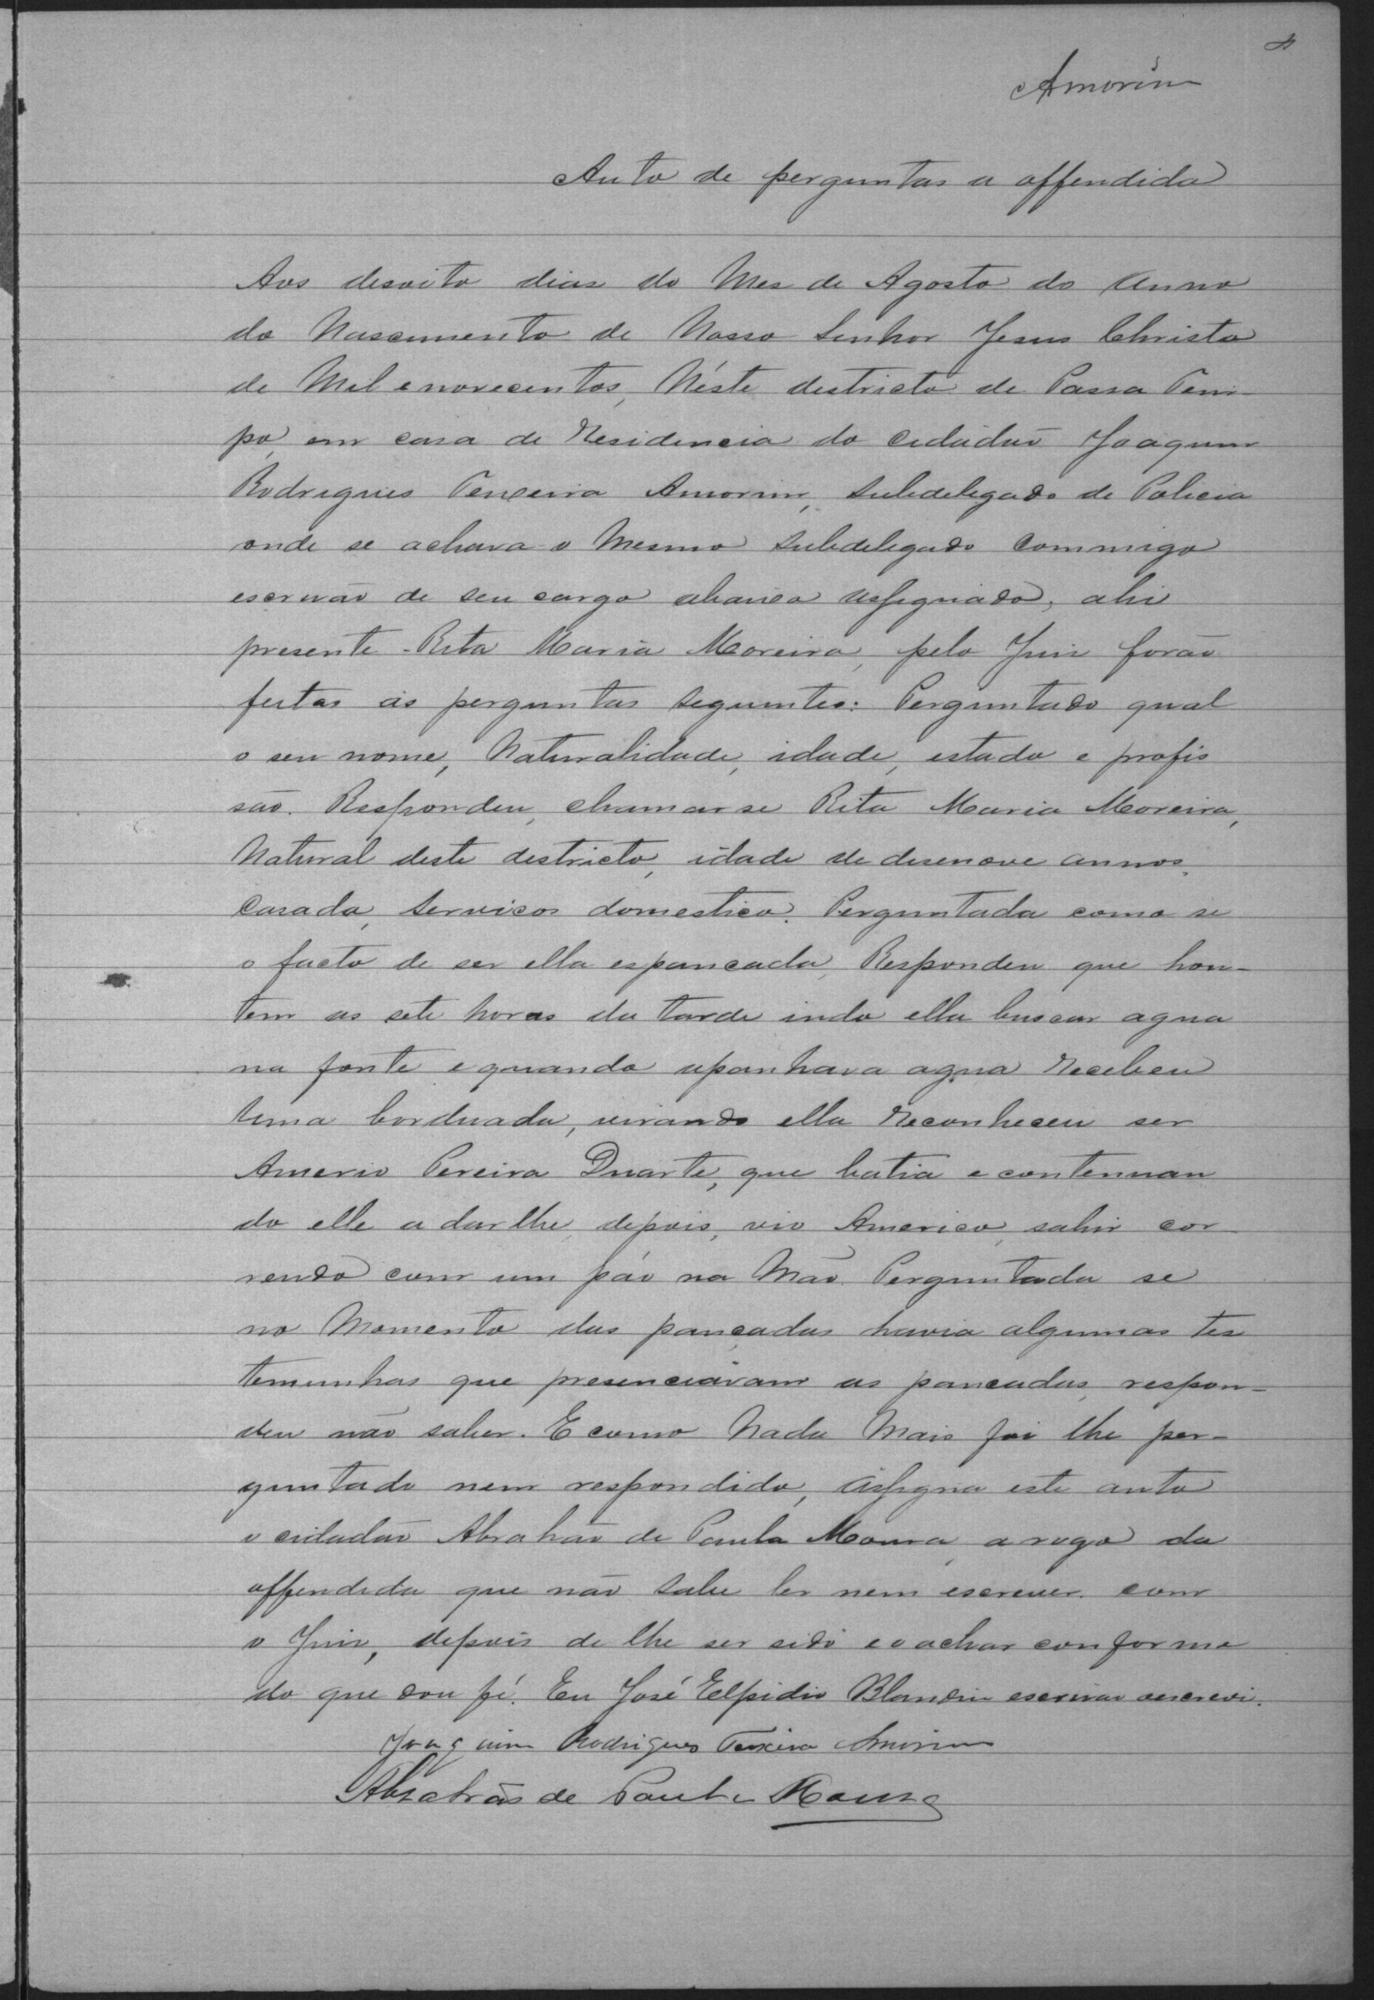 4
Amorim
Auto de perguntas a offendida
Aos desoito dias do Mes de Agosto do Anno
do Nascimento de Nosso Senhor Jesus Christo
de Mil e novecentos, Néste districto de Passa Tem-
po, em casa de Residencia do cidadão Joaquim
Rodrigues Teixeira Amorim, Subdelegado de Policia
onde se achava o Mesmo Subdelegado Commigo
escrivão de seu cargo abaixo assignado, ahi
presente Rita Maria Moreira, pelo Juiz forão
feitas as perguntas seguintes: Perguntado qual
o seu nome, Naturalidade, idade, estado e profis
são. Respondeu, chamar se Rita Maria Moreira,
Natural deste destricto, idade de desenove annos,
Casada, Serviços domestico. Perguntada como se
o facto de ser ella espancada, Respondeu que hon-
tem as sete horas da tarde indo ella buscar agua
na fonte e quando apanhava agua Recebeu
uma borduada, virando ella Reconheceu ser
Amerio Pereira Duarte, que batia e contenuan
do elle a dar lhe, depois, vio Americo, sahir cor
rendo com um páo na Mão. Perguntada se
no Momento das pancadas havia algumas tes
temunhas que presenciávam as pancadas, respon-
deu não saber. E como Nada Mais foi lhe per-
guntado nem respondido, assigna este auto
o cidadão Abrahão de Paula Moura, a rogo da
offendida que não sabe ler nem escrever, com
o Juiz, depois de lhe ser lido e o achar conforme
do que dou fé. Eu José Elpidio Blandin escrivão o escrevi.
Joaquim Rodrigues Teixeira Amorim
Abrahão de Paula Moura